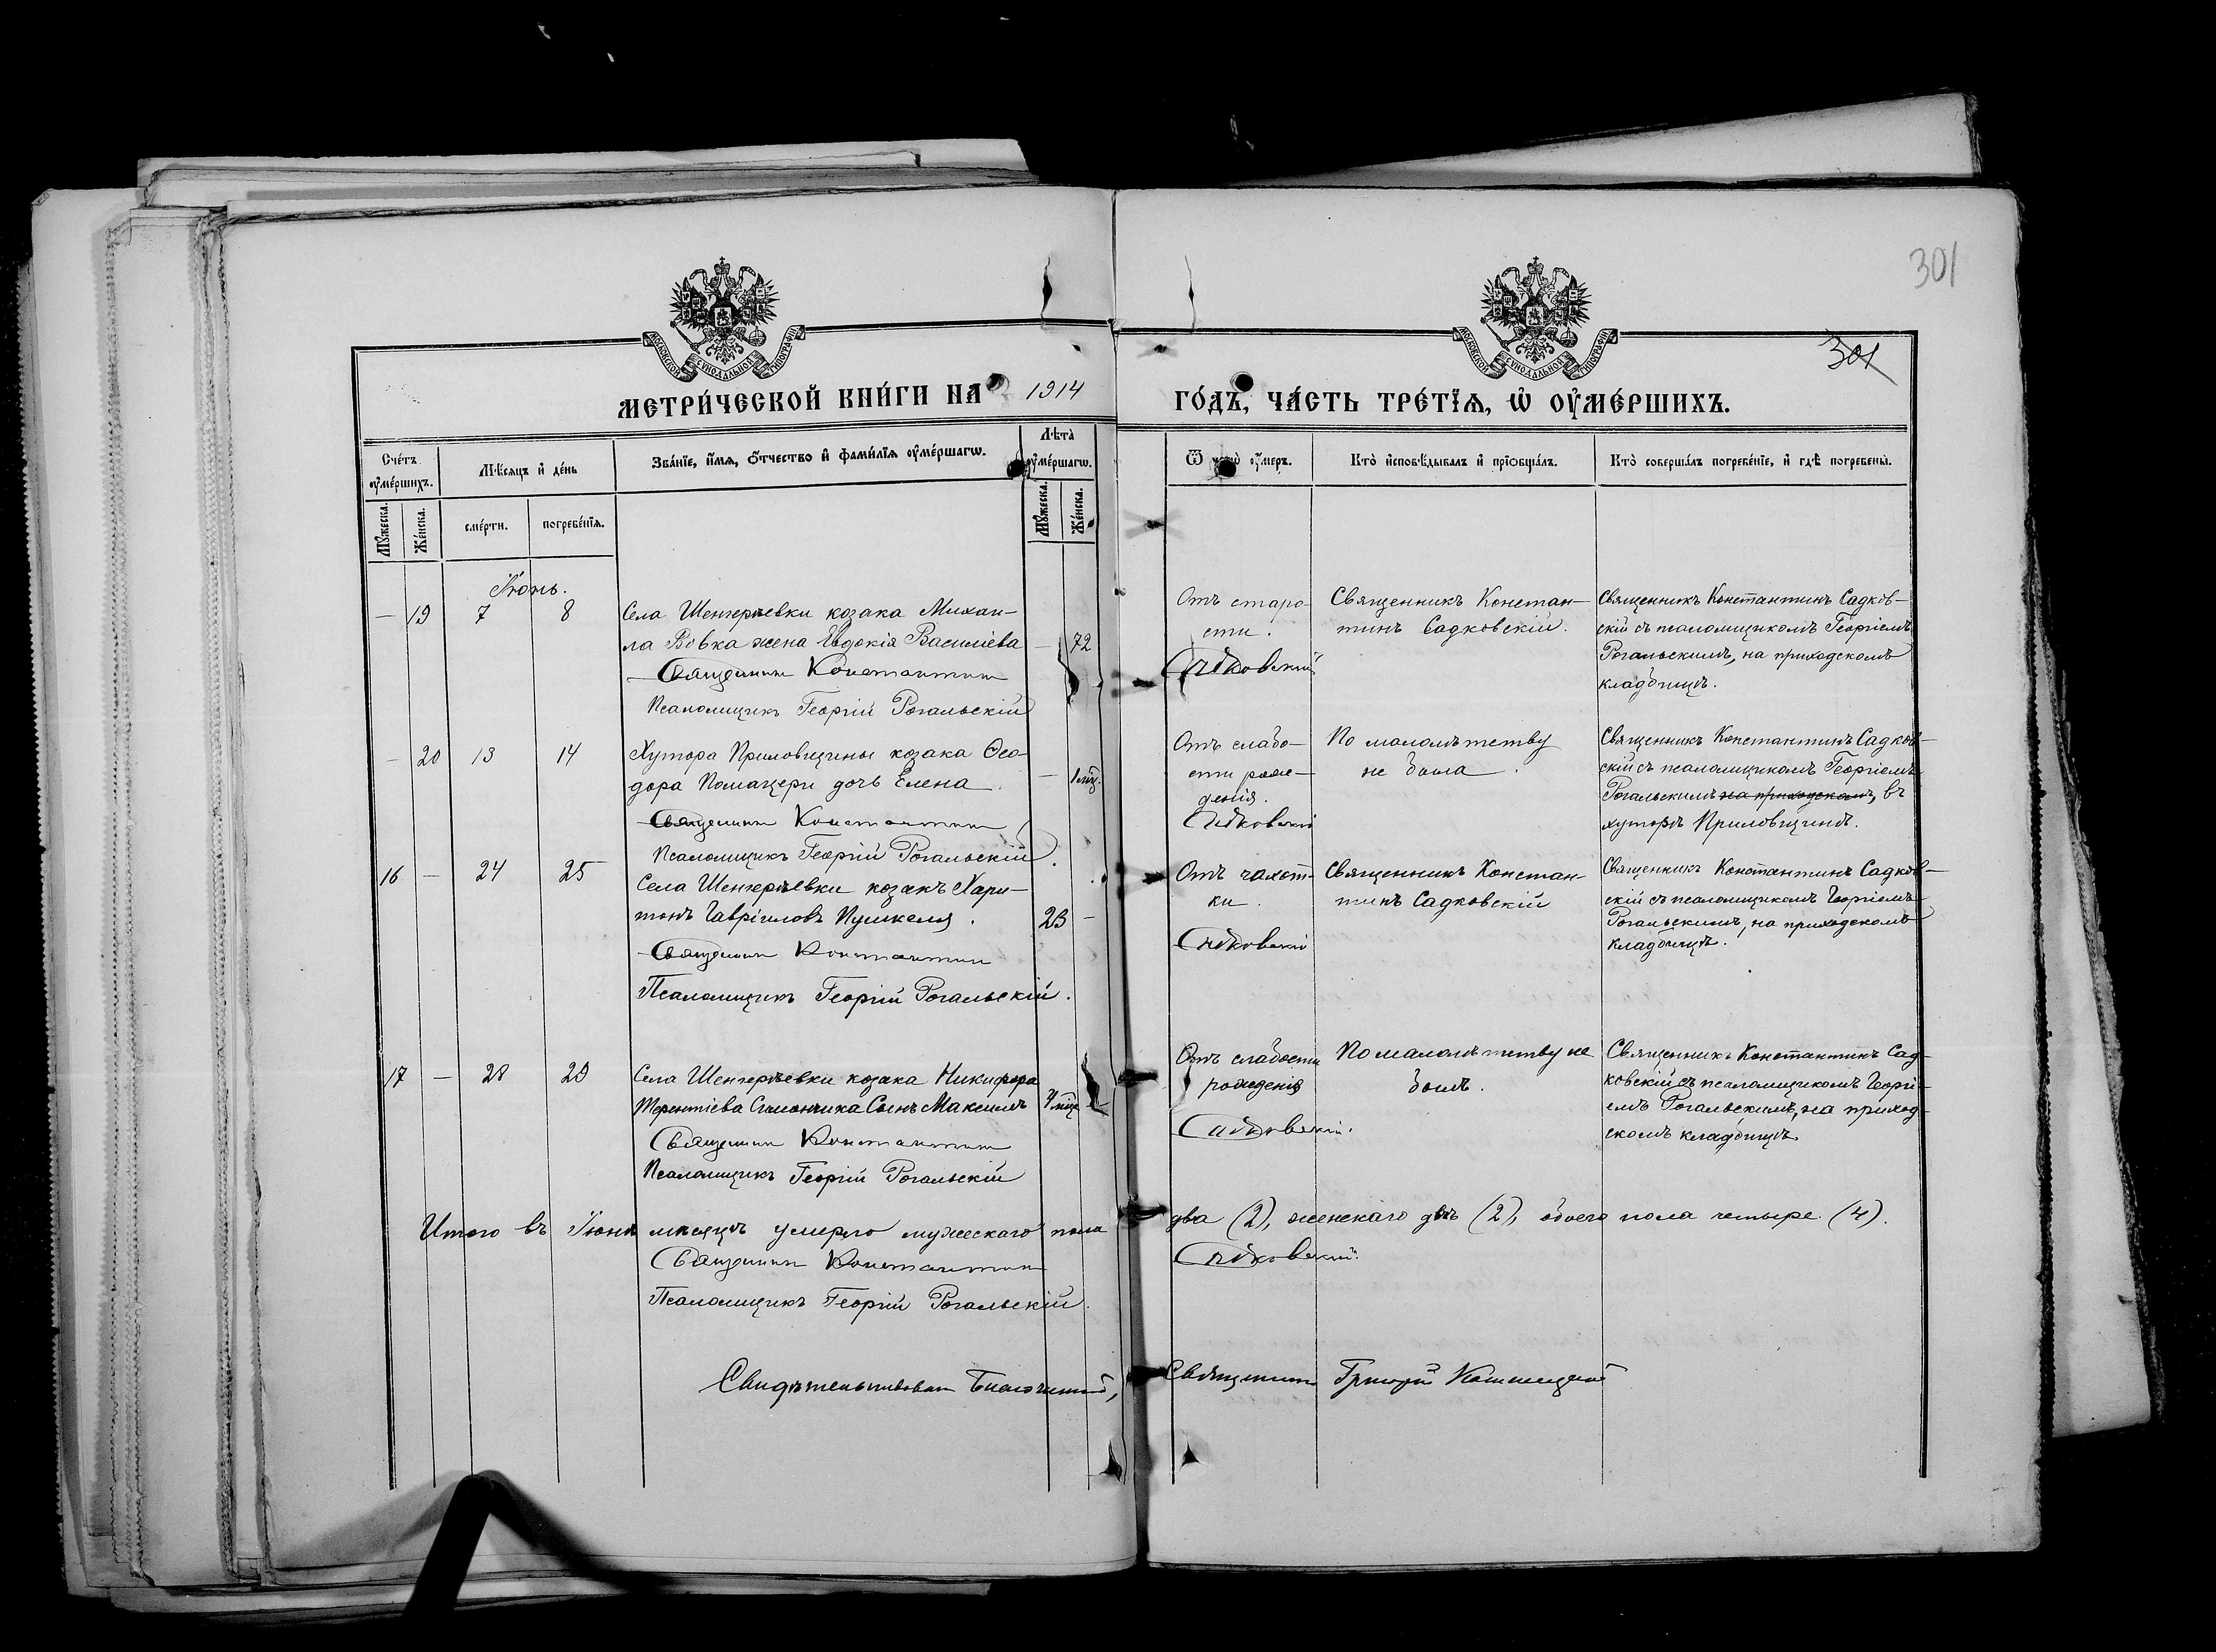 301
301
МОСКОВСКОЙ СѴНОДАЛЬНОЙ ТИПОГРАФІИ
МОСКОВСКОЙ СѴНОДАЛЬНОЙ ТИПОГРАФІИ
МЕТРИ́ЧЕСКОЙ КНИ́ГИ НА 1914 ГО́ДЪ, ЧА́СТЬ ТРЕ́ТЇѦ, Ѡ҆ ОУ҆МЕ́РШИХЪ.
Сче́тъ оу҆ме́ршихъ.
Мѣ́сяцъ и҆ де́нь
Зва́нїе, и҆́мя, ѻ҆́тчество и҆ фами́лїя оу҆ме́ршагѡ.
Лѣта̀ оу҆ме́ршагѡ.
Ѿ чегѡ̀ оу҆́меръ.
Кто̀ и҆сповѣ́дывалъ и҆ прїѡбща́лъ.
Кто̀ соверша́лъ погребе́нїе, и҆ гдѣ̀ погребены̀.
Мꙋ́жеска.
Же́нска.
сме́рти.
погребе́нїя.
Мꙋ́жеска.
Же́нска.
Іюнь.
— 19 7 8
Села Шенгерѣевки козака Михаи-
ла Вовка жена Евдокія Василіева — 72
Священникъ Константинъ
Псаломщикъ Георгій Рогальскій
Отъ старо-
сти.
Садковскій
Священникъ Констан-
тинъ Садковскій.
Священникъ Константинъ Садков-
скій съ псаломщикомъ Георгіемъ
Рогальскимъ, на приходскомъ
кладбищѣ.
— 20 13 14
Хутора Приловщины козака Ѳео-
дора дочь Елена. — 1 мѣц.
Священникъ Константинъ
Псаломщикъ Георгій Рогальскій.
Отъ слабо-
сти рож-
денія.
Садковскій
По малолѣтству
не была.
Священникъ Константинъ Садков-
скій съ псаломщикомъ Георгіемъ
Рогальскимъ на приходскомъ, въ
хуторѣ Приловщинѣ.
16 — 24 25
Села Шенгерѣевки козакъ Хари-
тонъ Гавріиловъ Пушкеля. 23 —
Священникъ Константинъ
Псаломщикъ Георгій Рогальскій.
Отъ чахот-
ки.
Садковскій
Священникъ Констан-
тинъ Садковскій
Священникъ Константинъ Садков-
скій съ псаломщикомъ Георгіемъ
Рогальскимъ, на приходскомъ
кладбищѣ.
17 — 28 29
Села Шенгерѣевки козака Никифора
Терентіева Симончика Сынъ Максимъ мѣц —
Священникъ Константинъ
Псаломщикъ Георгій Рогальскій
Отъ слабости
рожденія
Садковскій.
По малолѣтству не
былъ.
Священникъ Константинъ Сад-
ковскій съ псаломщикомъ Георгі-
емъ Рогальскимъ, на приход-
скомъ кладбищѣ.
Итого въ Іюнѣ мѣсяцѣ умерло мужескаго пола два (2), женскаго двѣ (2), обоего пола четыре (4).
Священникъ Константинъ Садковскій.
Псаломщикъ Георгій Рогальскій.
Свидѣтельствовалъ Благочинный, Священникъ Григорій